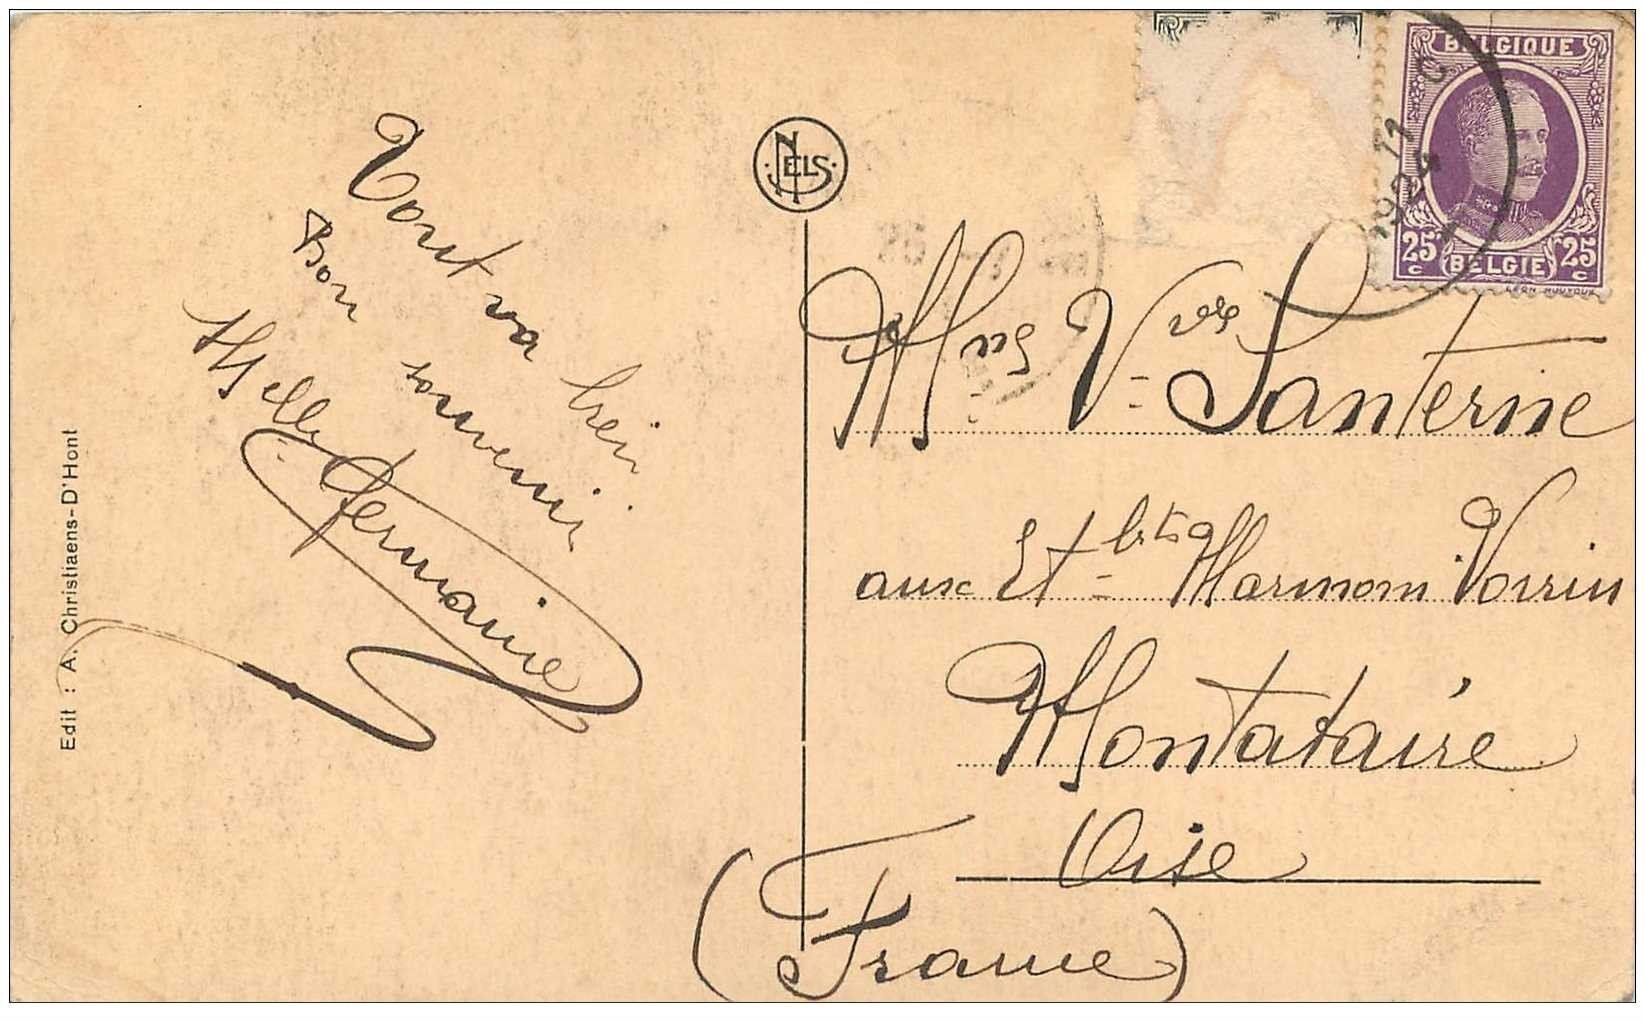 Tout va bien
Bon souvenir
Melle Germaine
Edit : A. Christiaens-D'Hont
NELS
BELGIQUE
25c 25c
BELGIE
11
1924
Mme Vve Santerne
aux Etbts Marmoni Voirin
Montataire
Oise
(France)